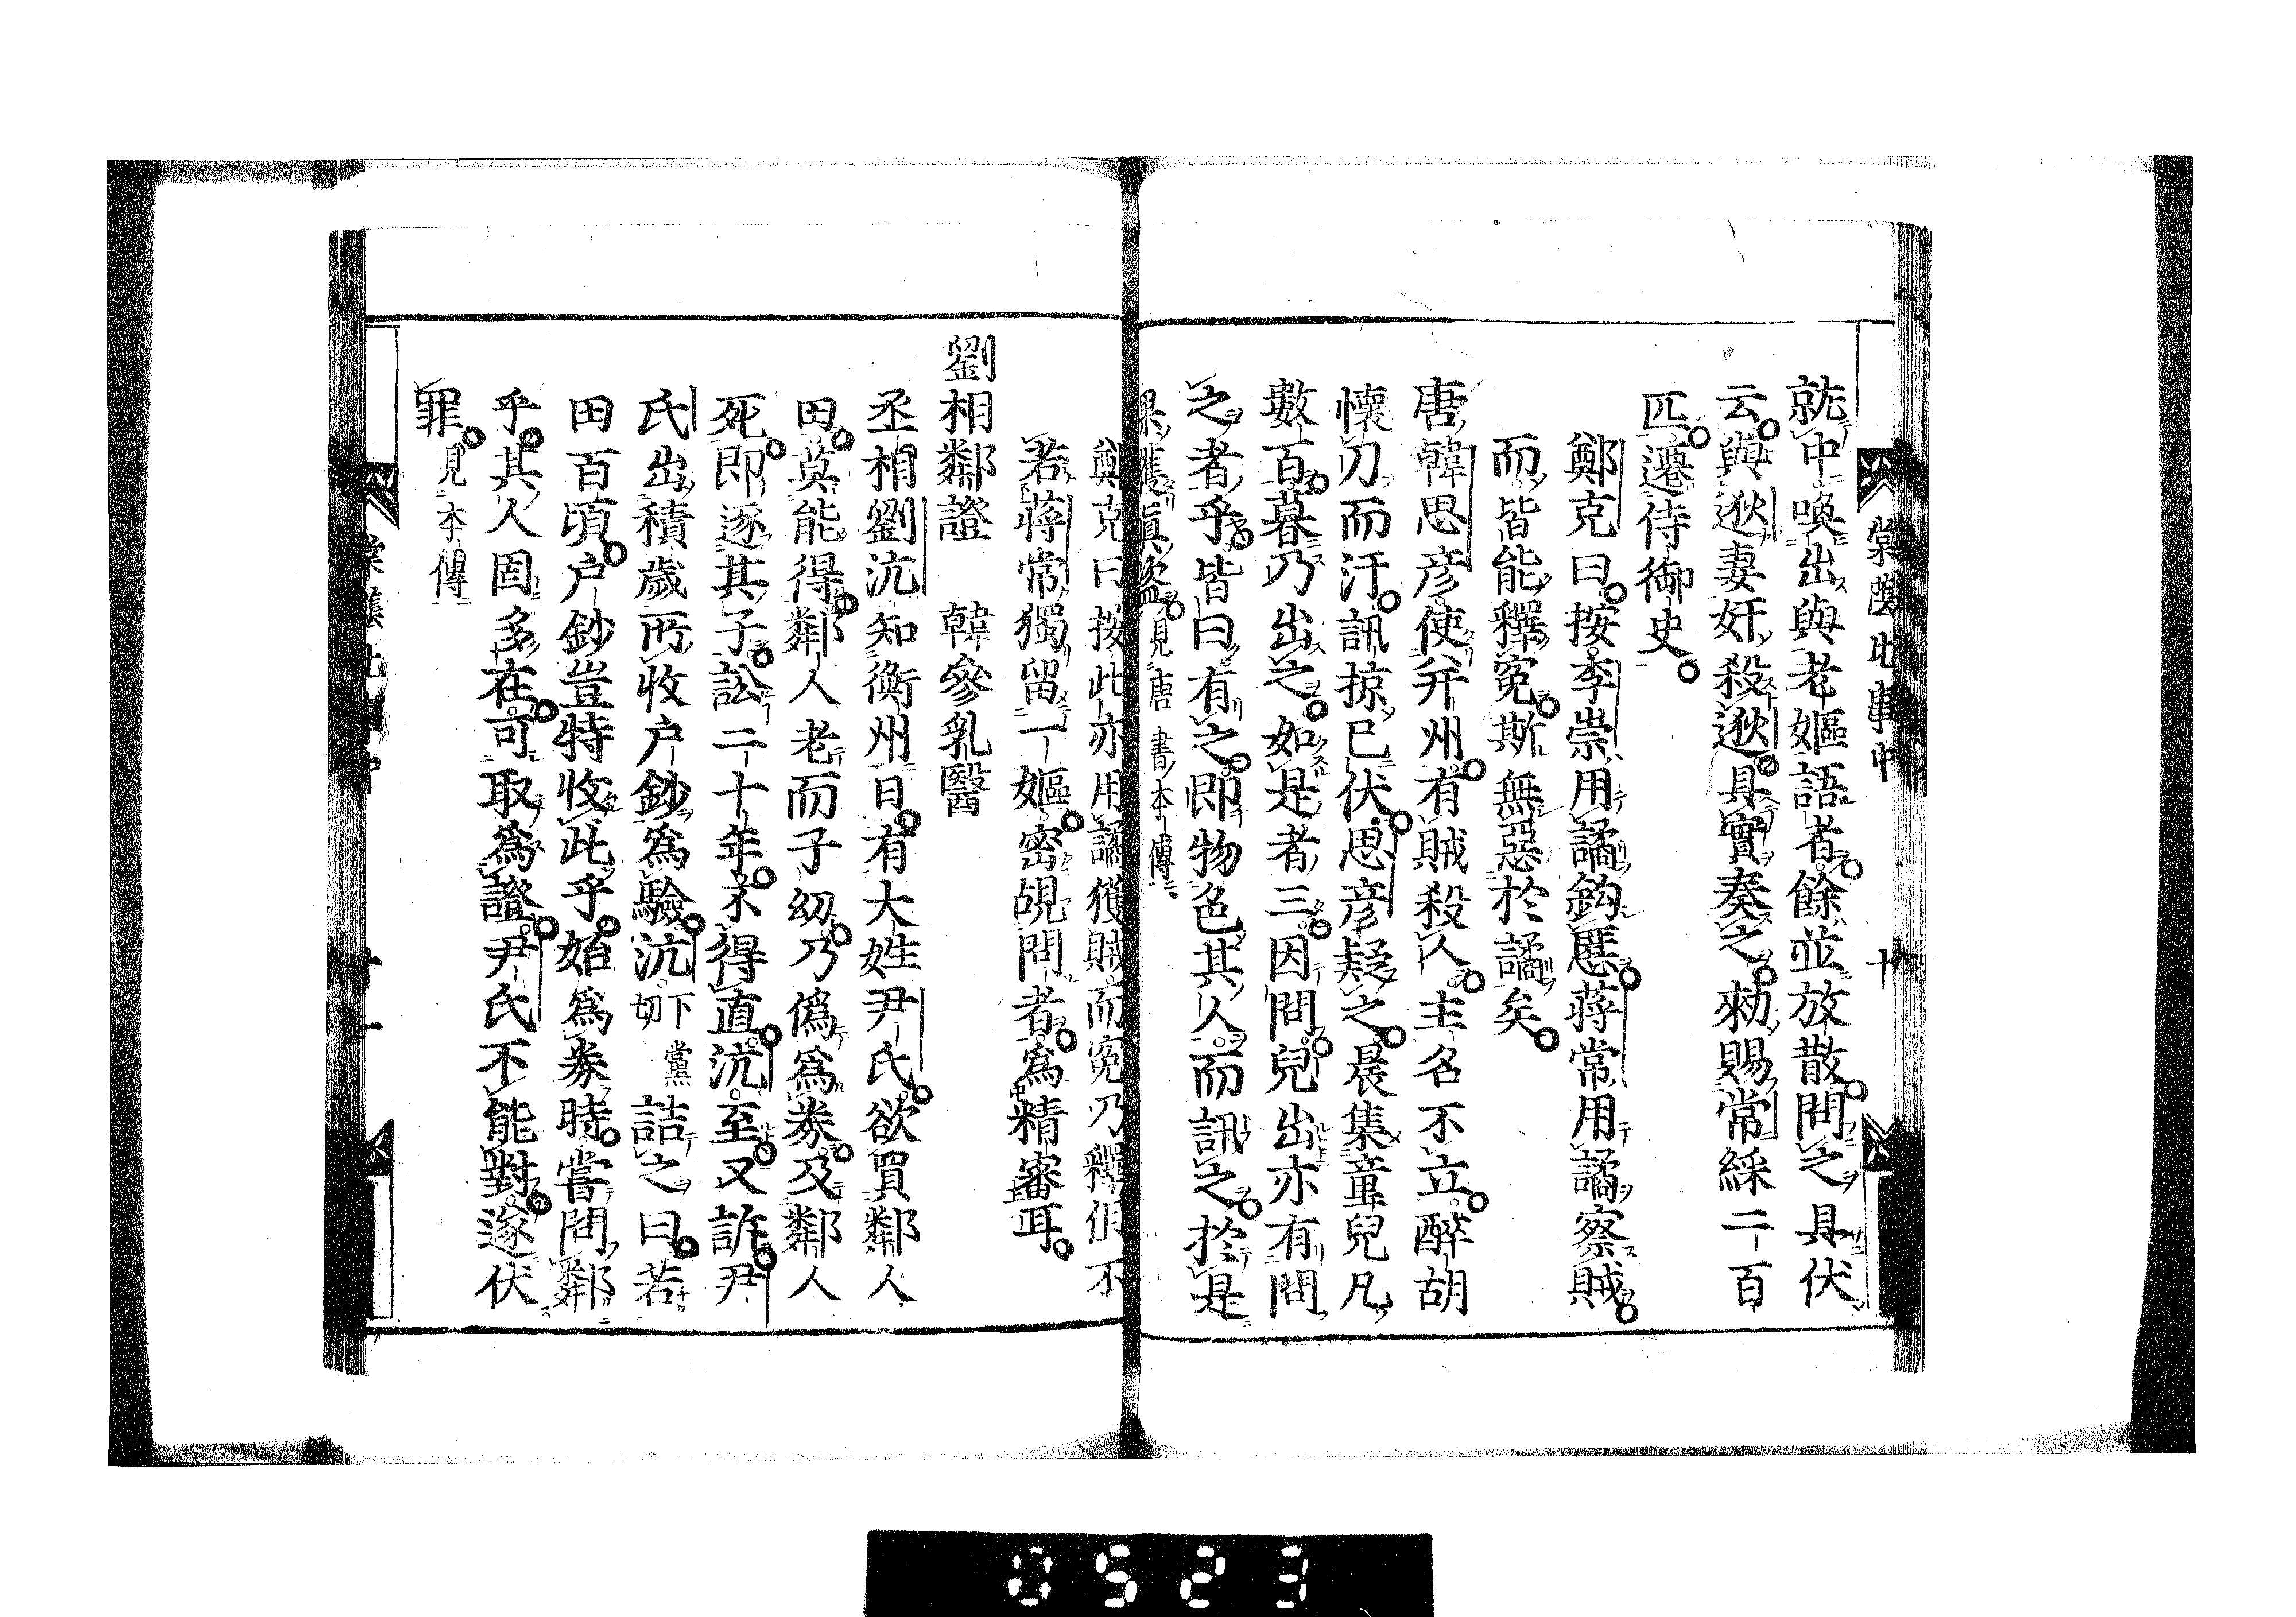 棠陰比事中
十
就中喚出與老嫗語者餘並放散問之具伏
云與逖妻奸殺逖具實奏之勑賜常綵二百
匹遷侍御史
鄭克曰按李崇用譎鈎慝蒋常用譎察賊
而皆能釋寃斯無惡於譎矣
唐韓思彦使并州有賊殺人主名不立醉胡
懷刀而汗訊掠已伏思彦疑之晨集童兒凡
數百暮乃出之如是者三因問兒出亦有問
之者乎皆曰有之即物色其人而訊之於是
果獲眞盗見唐書本傳
鄭克曰按此亦用譎獲賊而寃乃釋但不
若蒋常獨留一嫗密覘問者爲精審耳
劉相鄰證 韓參乳醫
丞相劉沆知衡州日有大姓尹氏欲買鄰人
田莫能得鄰人老而子幼乃僞爲券及鄰人
死即逐其子訟二十年不得直沆至又訴尹
氏出積歳所收户鈔爲驗沆下黨切詰之曰若
田百頃户鈔豈特收此乎始爲券時嘗問鄰
乎其人固多在可取爲證尹氏不能對遂伏
罪見本傳
0523